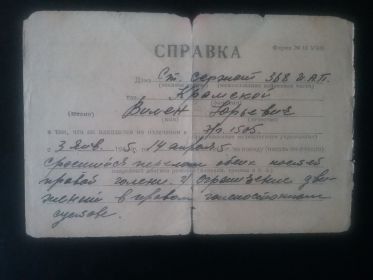 СПРАВКА
Форма №
Дана Ст. сержант 368 И.А.П.
Крамской
Вилен Юрьевич
в том, что он находился на излечении в Э/г. 1505
с 3 янв. 1945 14 апреля 5
сросшийся перелом обеих костей
правой голени. 2/ Ограничение дви-
жений в правом голеностопном
суставе.